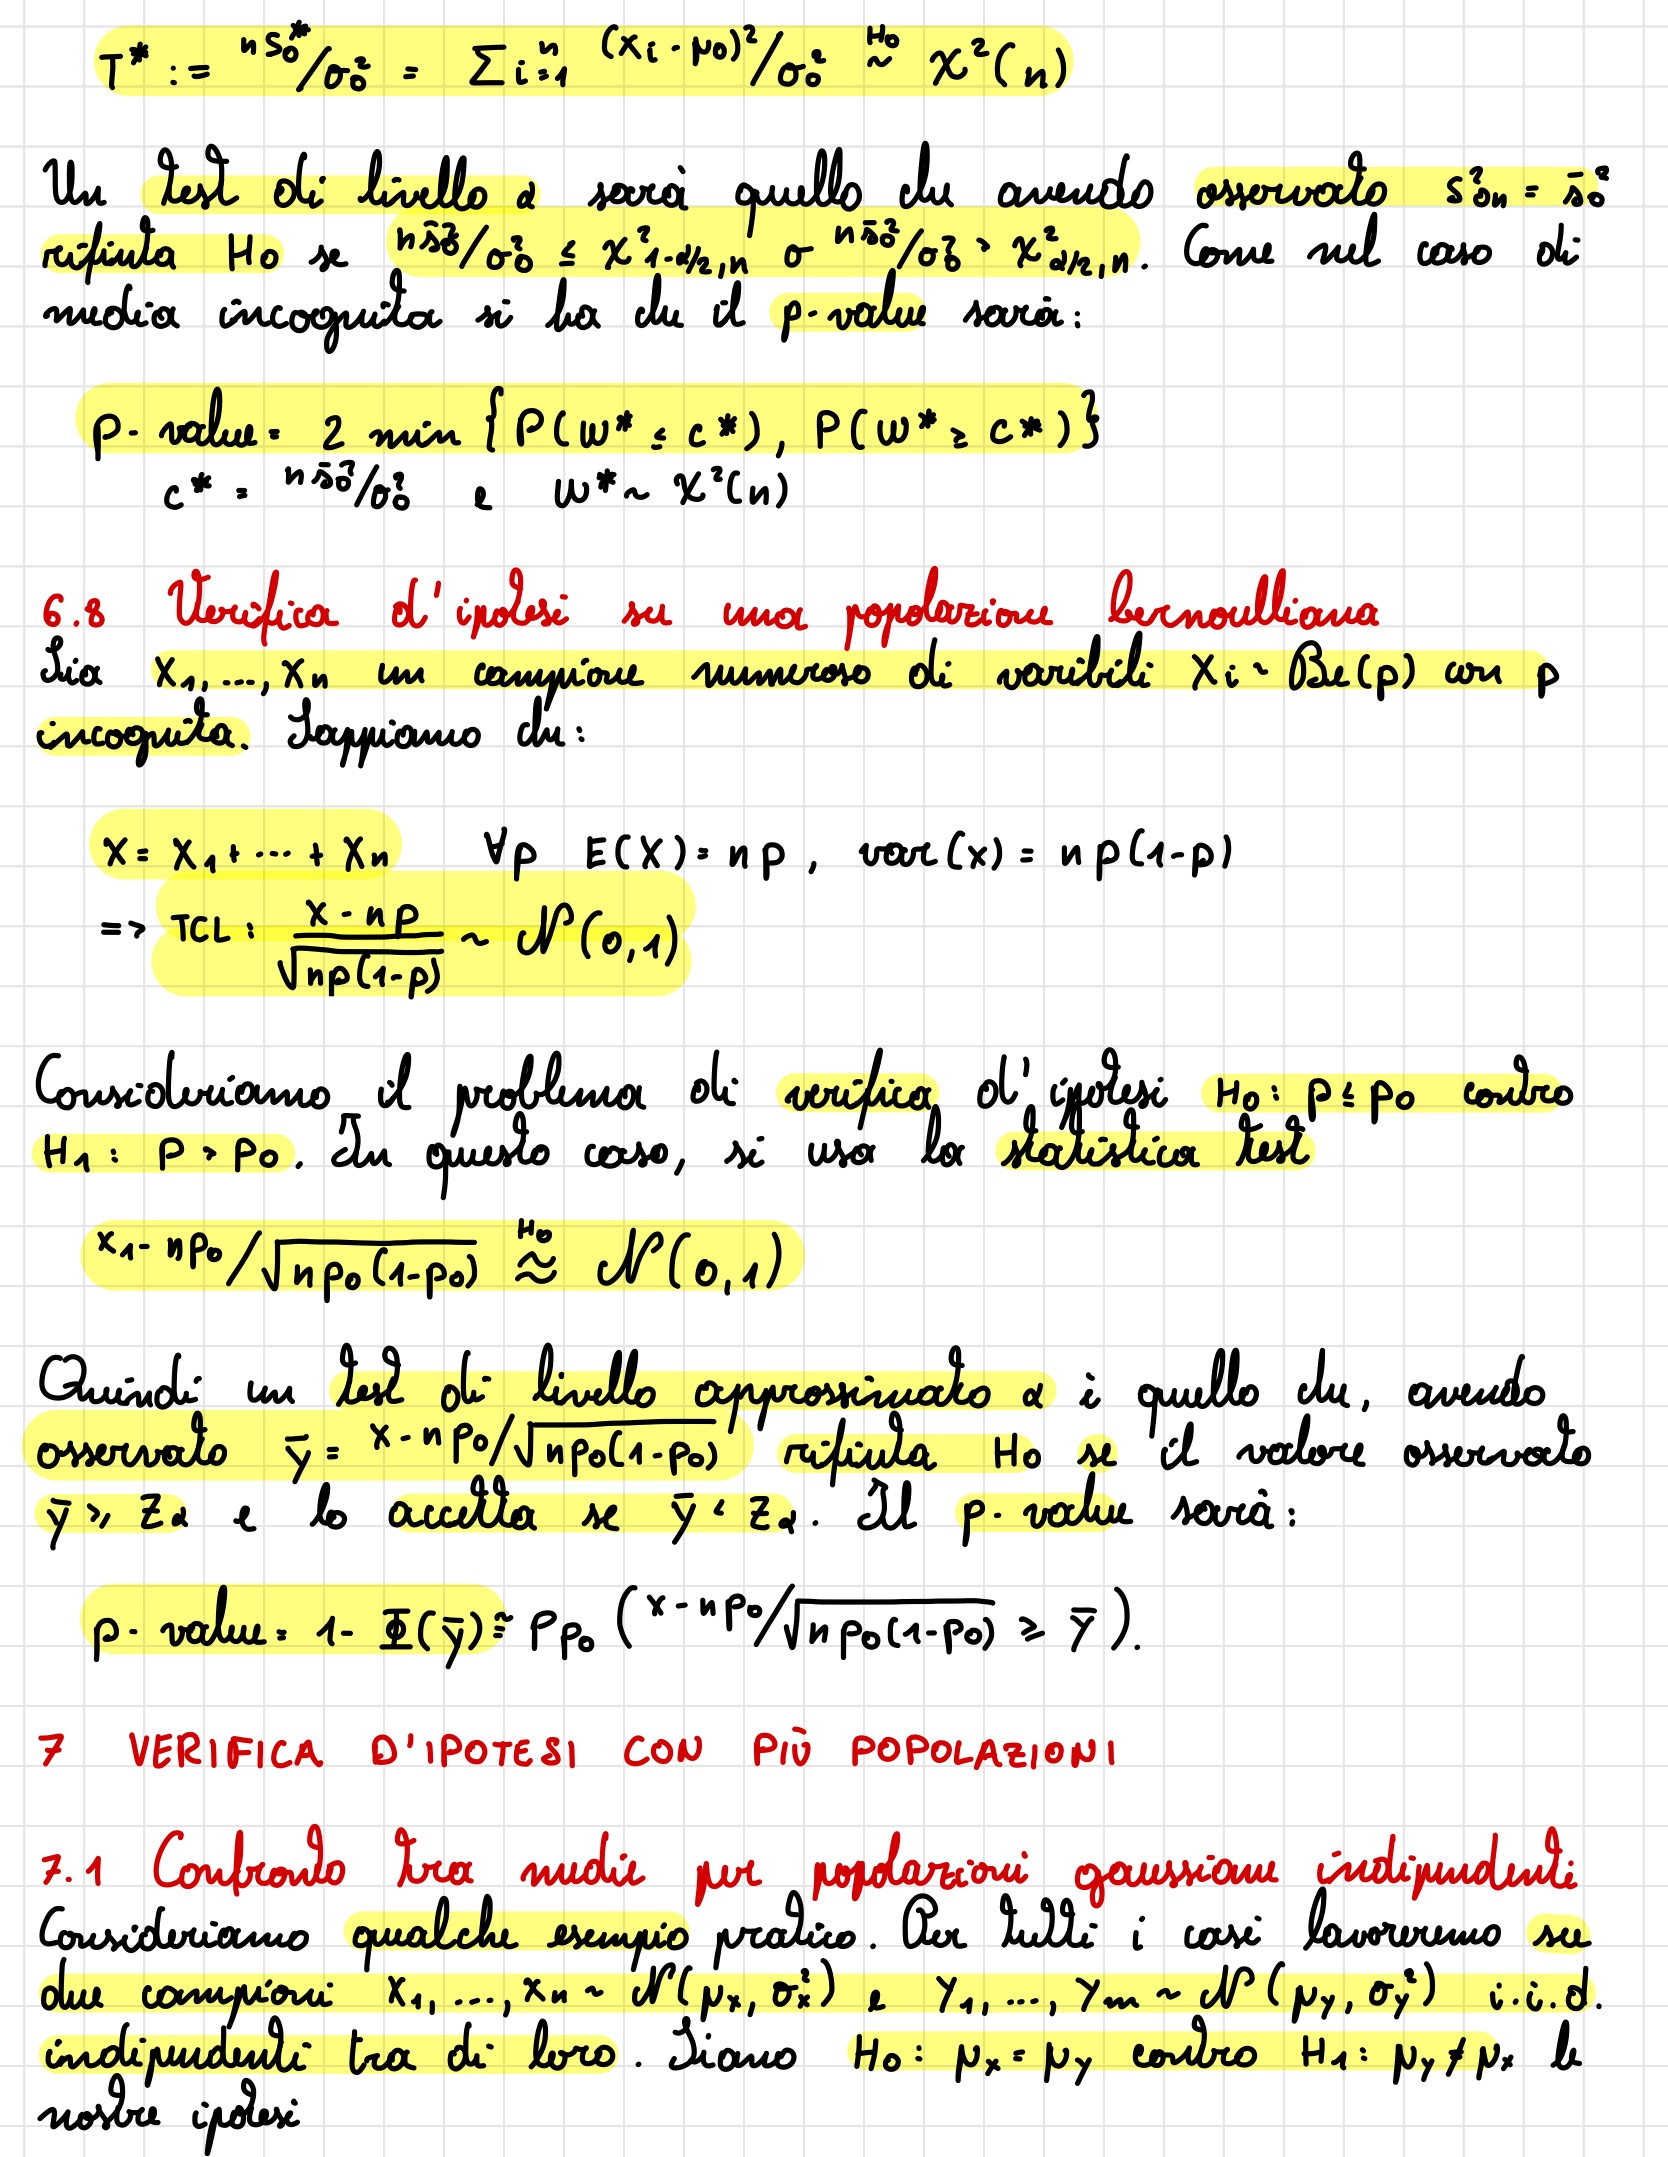 T* := nS₀*/σ₀² = Σi=1ⁿ (xi - μ0)²/σ₀² ~ᴴ⁰ χ²(n)
Un test di livello α sarà quello che avendo osservato S²0n = s̄0²
rifiuta H0 se ns̄0²/σ0² ≤ χ²1-α/2,n o ns̄0²/σ0² > χ²α/2,n. Come nel caso di
media incognita si ha che il p-value sarà:
p-value = 2 min {P(W* ≤ c*), P(W* ≥ c*)}
c* = ns̄0²/σ0² e W* ~ χ²(n)
6.8 Verifica d'ipotesi su una popolazione bernoulliana
Sia X1, ..., Xn un campione numeroso di varibili Xi ~ Be(p) con p
incognita. Sappiamo che:
X = X1 + ... + Xn ∀p E(X) = np, var(x) = np(1-p)
=> TCL: (X - np)/√np(1-p) ~ N(0,1)
Consideriamo il problema di verifica d'ipotesi H0: p ≤ p0 contro
H1: p > p0. In questo caso, si usa la statistica test
x1 - np0/√np0(1-p0) ≈ᴴ⁰ N(0,1)
Quindi un test di livello approssimato α è quello che, avendo
osservato ȳ = x - np0/√np0(1-p0) rifiuta H0 se il valore osservato
ȳ ≥ Zα e lo accetta se ȳ < Zα. Il p-value sarà:
p-value = 1 - Φ(ȳ) ≅ Pp0 (x - np0/√np0(1-p0) ≥ ȳ).
7 VERIFICA D'IPOTESI CON PIÙ POPOLAZIONI
7.1 Confronto tra medie per popolazioni gaussiane indipendenti
Consideriamo qualche esempio pratico. Per tutti i casi lavoreremo su
due campioni X1, ..., Xn ~ N(μx, σx²) e Y1, ..., Ym ~ N(μy, σy²) i.i.d.
indipendenti tra di loro. Siano H0: μx = μy contro H1: μy ≠ μx le
nostre ipotesi